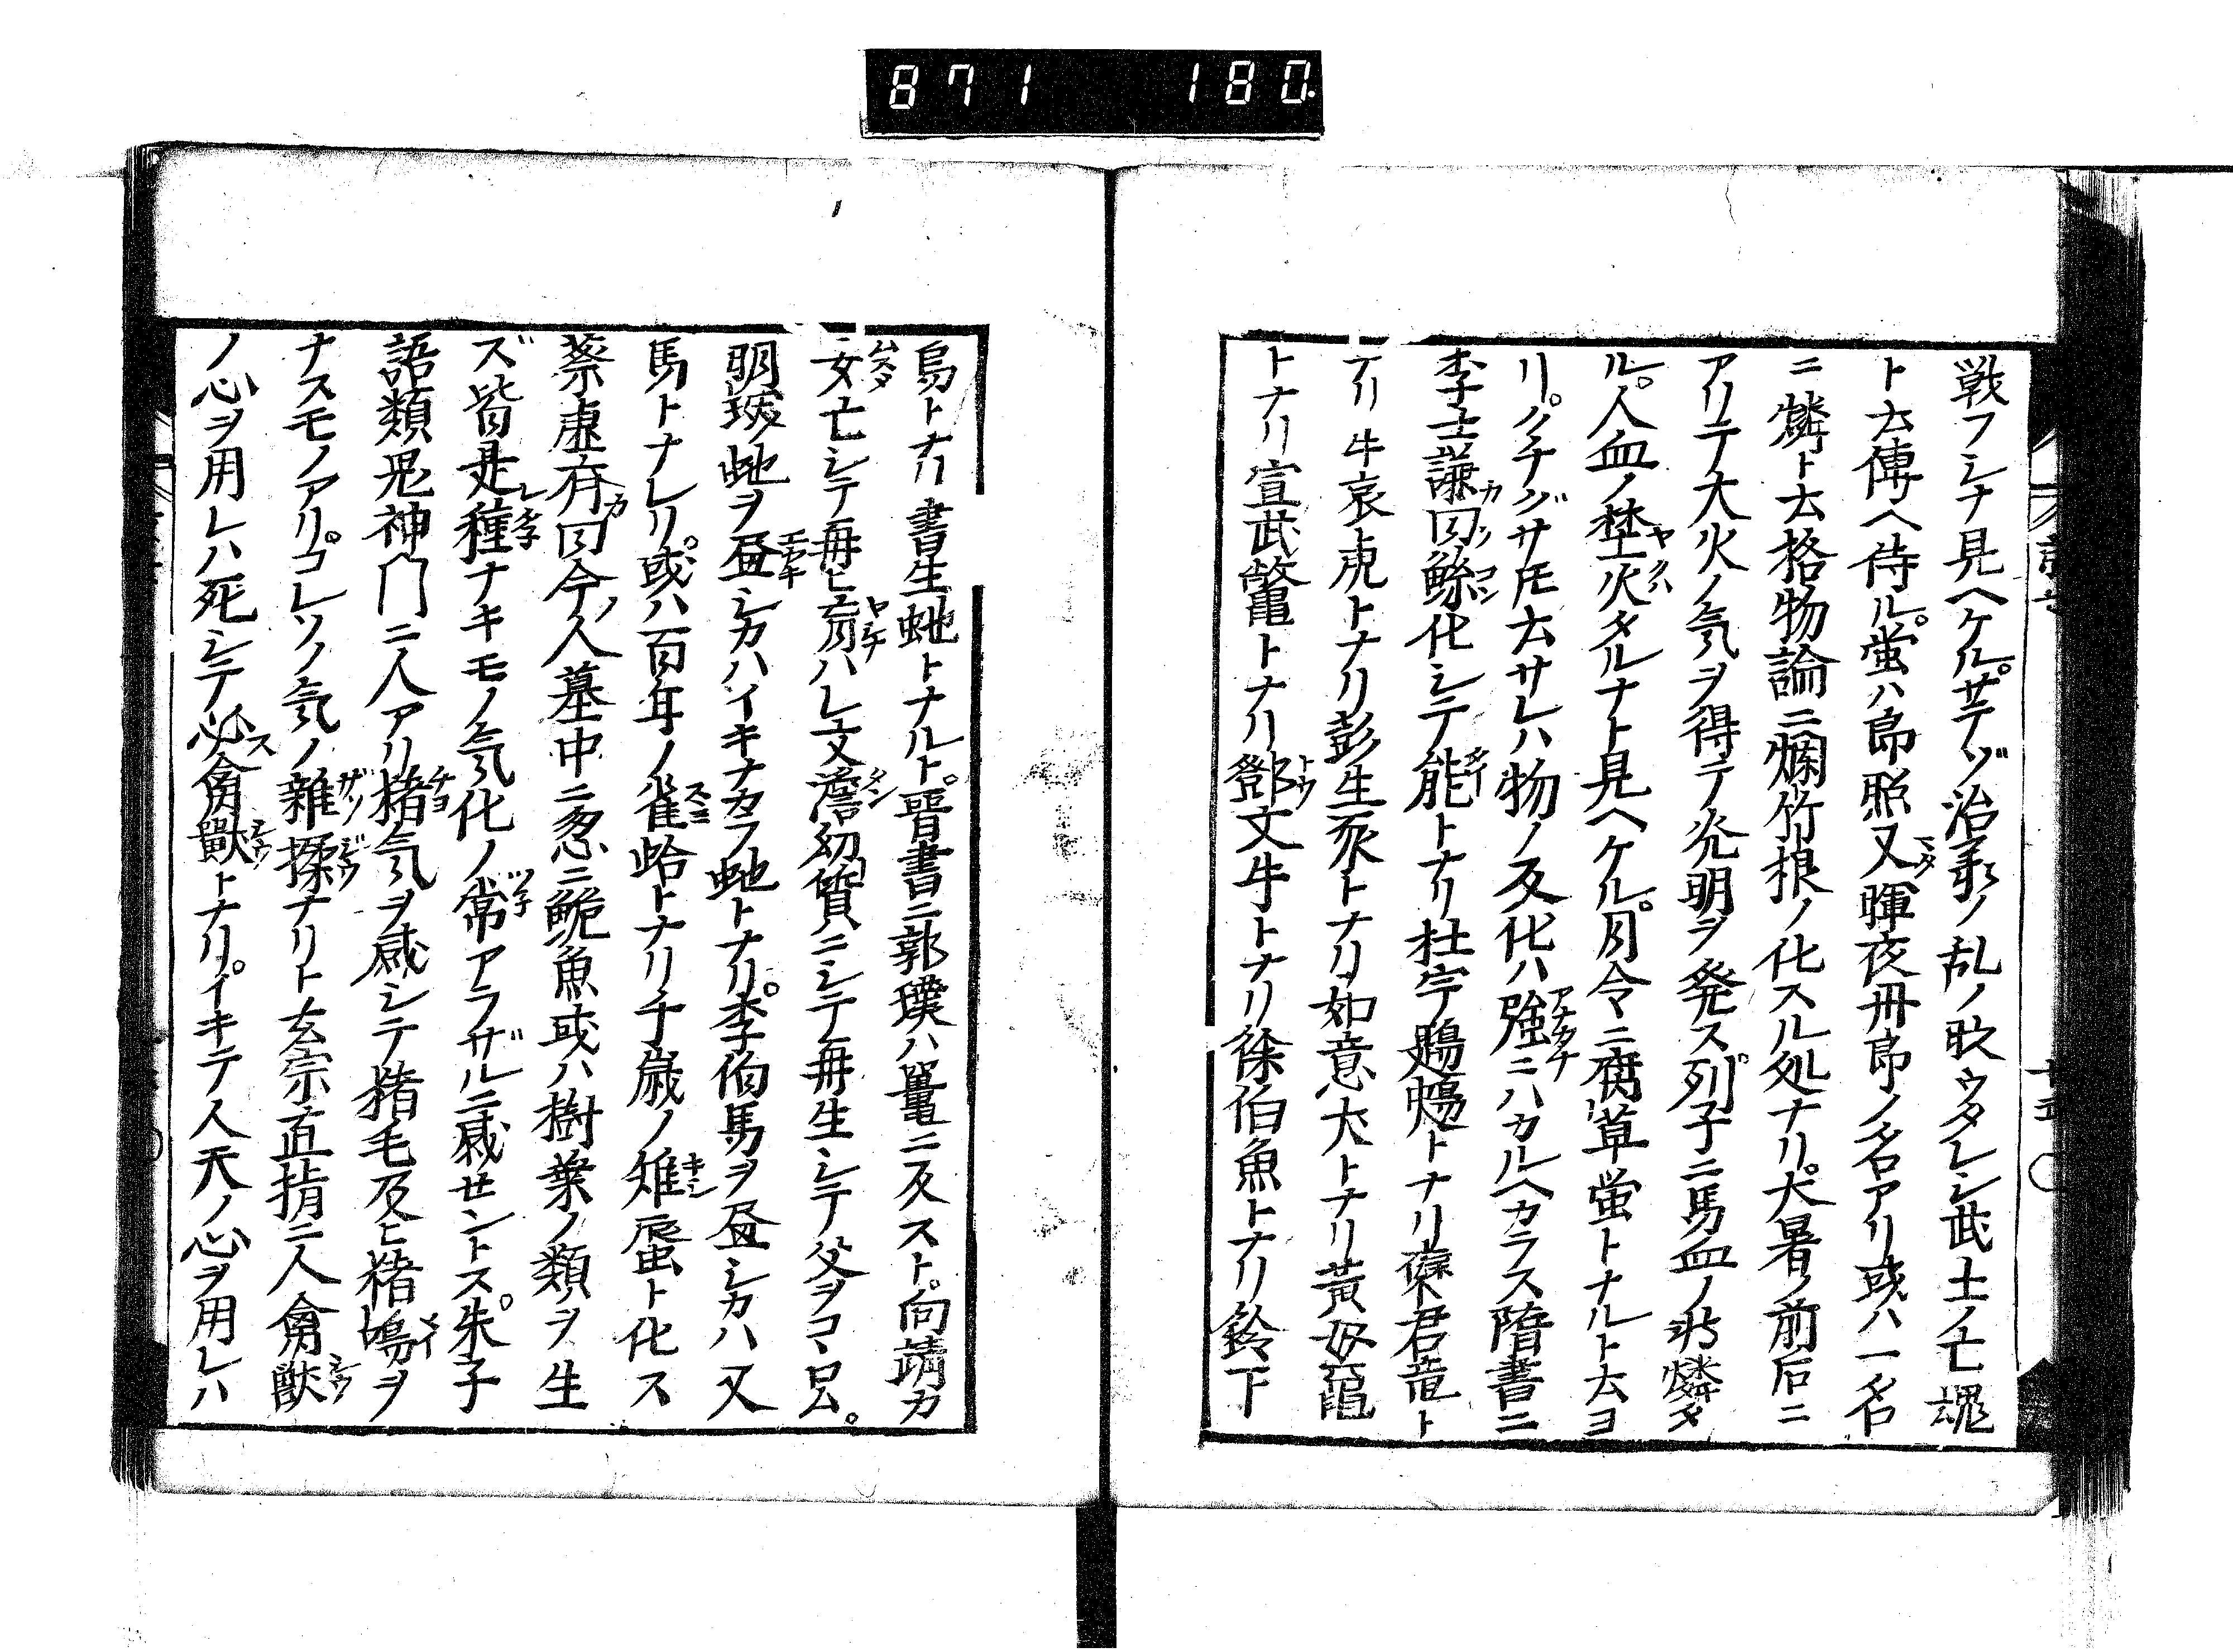 871 180
戦フシナ見ヘケル。サテゾ治承ノ乱ノ時ウタレシ武士ノ亡魂
ト云傳ヘ侍ル。蛍ハ即照又暉夜丹鳥ノ名アリ或ハ一名
ニ燐ト云格物論ニ爛竹根ノ化スル処ナリ。大暑ノ前后ニ
アリテ大火ノ気ヲ得テ光明ヲ発ス。列子ニ馬血ノ轉燐タ
ル。人血ノ埜火タルナト見ヘケル。月令ニ腐草蛍トナルト云ヨ
リ。クチグサ𪜈云サレハ物ノ反化ハ強ニハカルヘカラス隋書ニ
李士謙曰鯀化シテ能トナリ杜宇鶗鴂トナリ褒君竜ト
ナリ牛哀虎トナリ彭生豕トナリ如意犬トナリ黄母黿
トナリ宣武鼈トナリ鄧艾牛トナリ徐伯魚トナリ鈴下
烏トナリ書生蛇トナルト。晋書ニ郭璞ハ鼉ニ反スト。向靖カ
女亡シテ毎ヒ育ハレ文澹幼質ハニシテ毎生シテ父ヲコマ呂。
明琰蛇ヲ昼シカハイキナカラ蛇トナリ。李伯馬ヲ昼シカハ又
馬トナレリ。或ハ百年ノ雀蛤トナリ千歳ノ雉蜃ト化ス
蔡虚斎曰今ノ人墓中ニ忽ニ鮠魚或ハ樹葉ノ類ヲ生
ズ皆是種ナキモノ気化ノ常アラザルニ感センドス。朱子
語類鬼神門ニ人アリ猪気ヲ感シテ猪毛及ヒ猪鳴ヲ
ナスモノアリ。コレソノ気ノ雑揉ナリト玄宗直指ニ人禽獣
ノ心ヲ用レハ死シテ必禽獣トナリ。イキテ人天ノ心ヲ用レハ